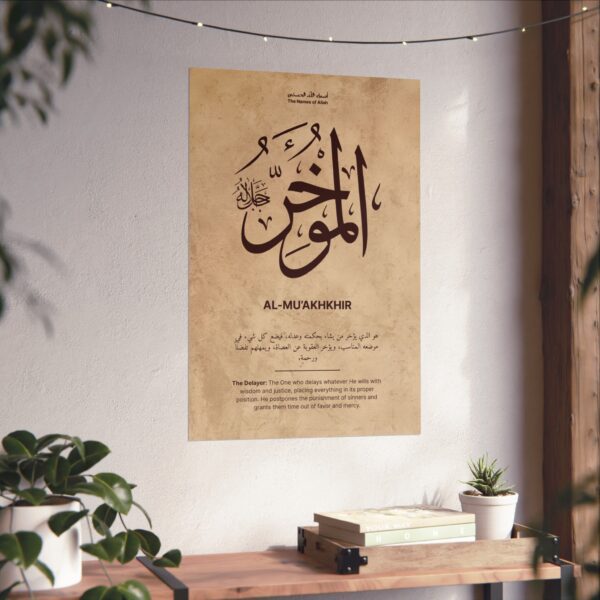 أسماء الله الحسنى
The Names of Allah
المؤخر
جل جلاله
AL-MU'AKHKHIR
هو الذي يؤخر من يشاء بحكمته وعدله، فيضع كل شيء في
موضعه المناسب، ويؤخر العقوبة عن العصاة، ويمهلهم تفضلاً
ورحمة.
The Delayer: The One who delays whatever He wills with
wisdom and justice, placing everything in its proper
position. He postpones the punishment of sinners and
grants them time out of favor and mercy.